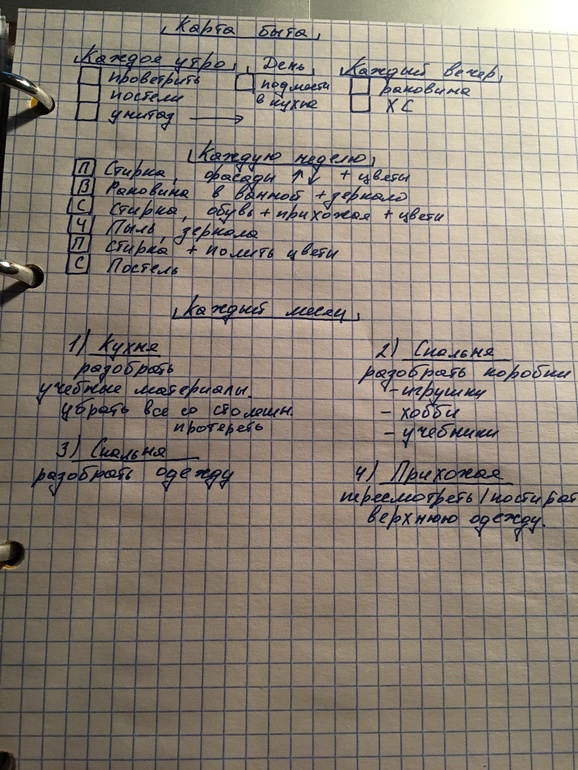 Карта быта
Каждое утро
проветрить
постели
унитаз
День
подмести
в кухне
Каждый вечер
раковина
ХС
Каждую неделю
П Стирка, фасады ↑↓ + цветы
В Раковина в ванной + зеркало
С Стирка, обувь + прихожая + цветы
Ч Пыль, зеркала
П Стирка + полить цветы
С Постель
Каждый месяц
1) Кухня
разобрать
учебные материалы.
убрать все со столешн.
протереть
2) Спальня
разобрать коробки
- игрушки
- хобби
- учебники
3) Спальня
разобрать одежду
4) Прихожая
пересмотреть/постират
верхнюю одежду.